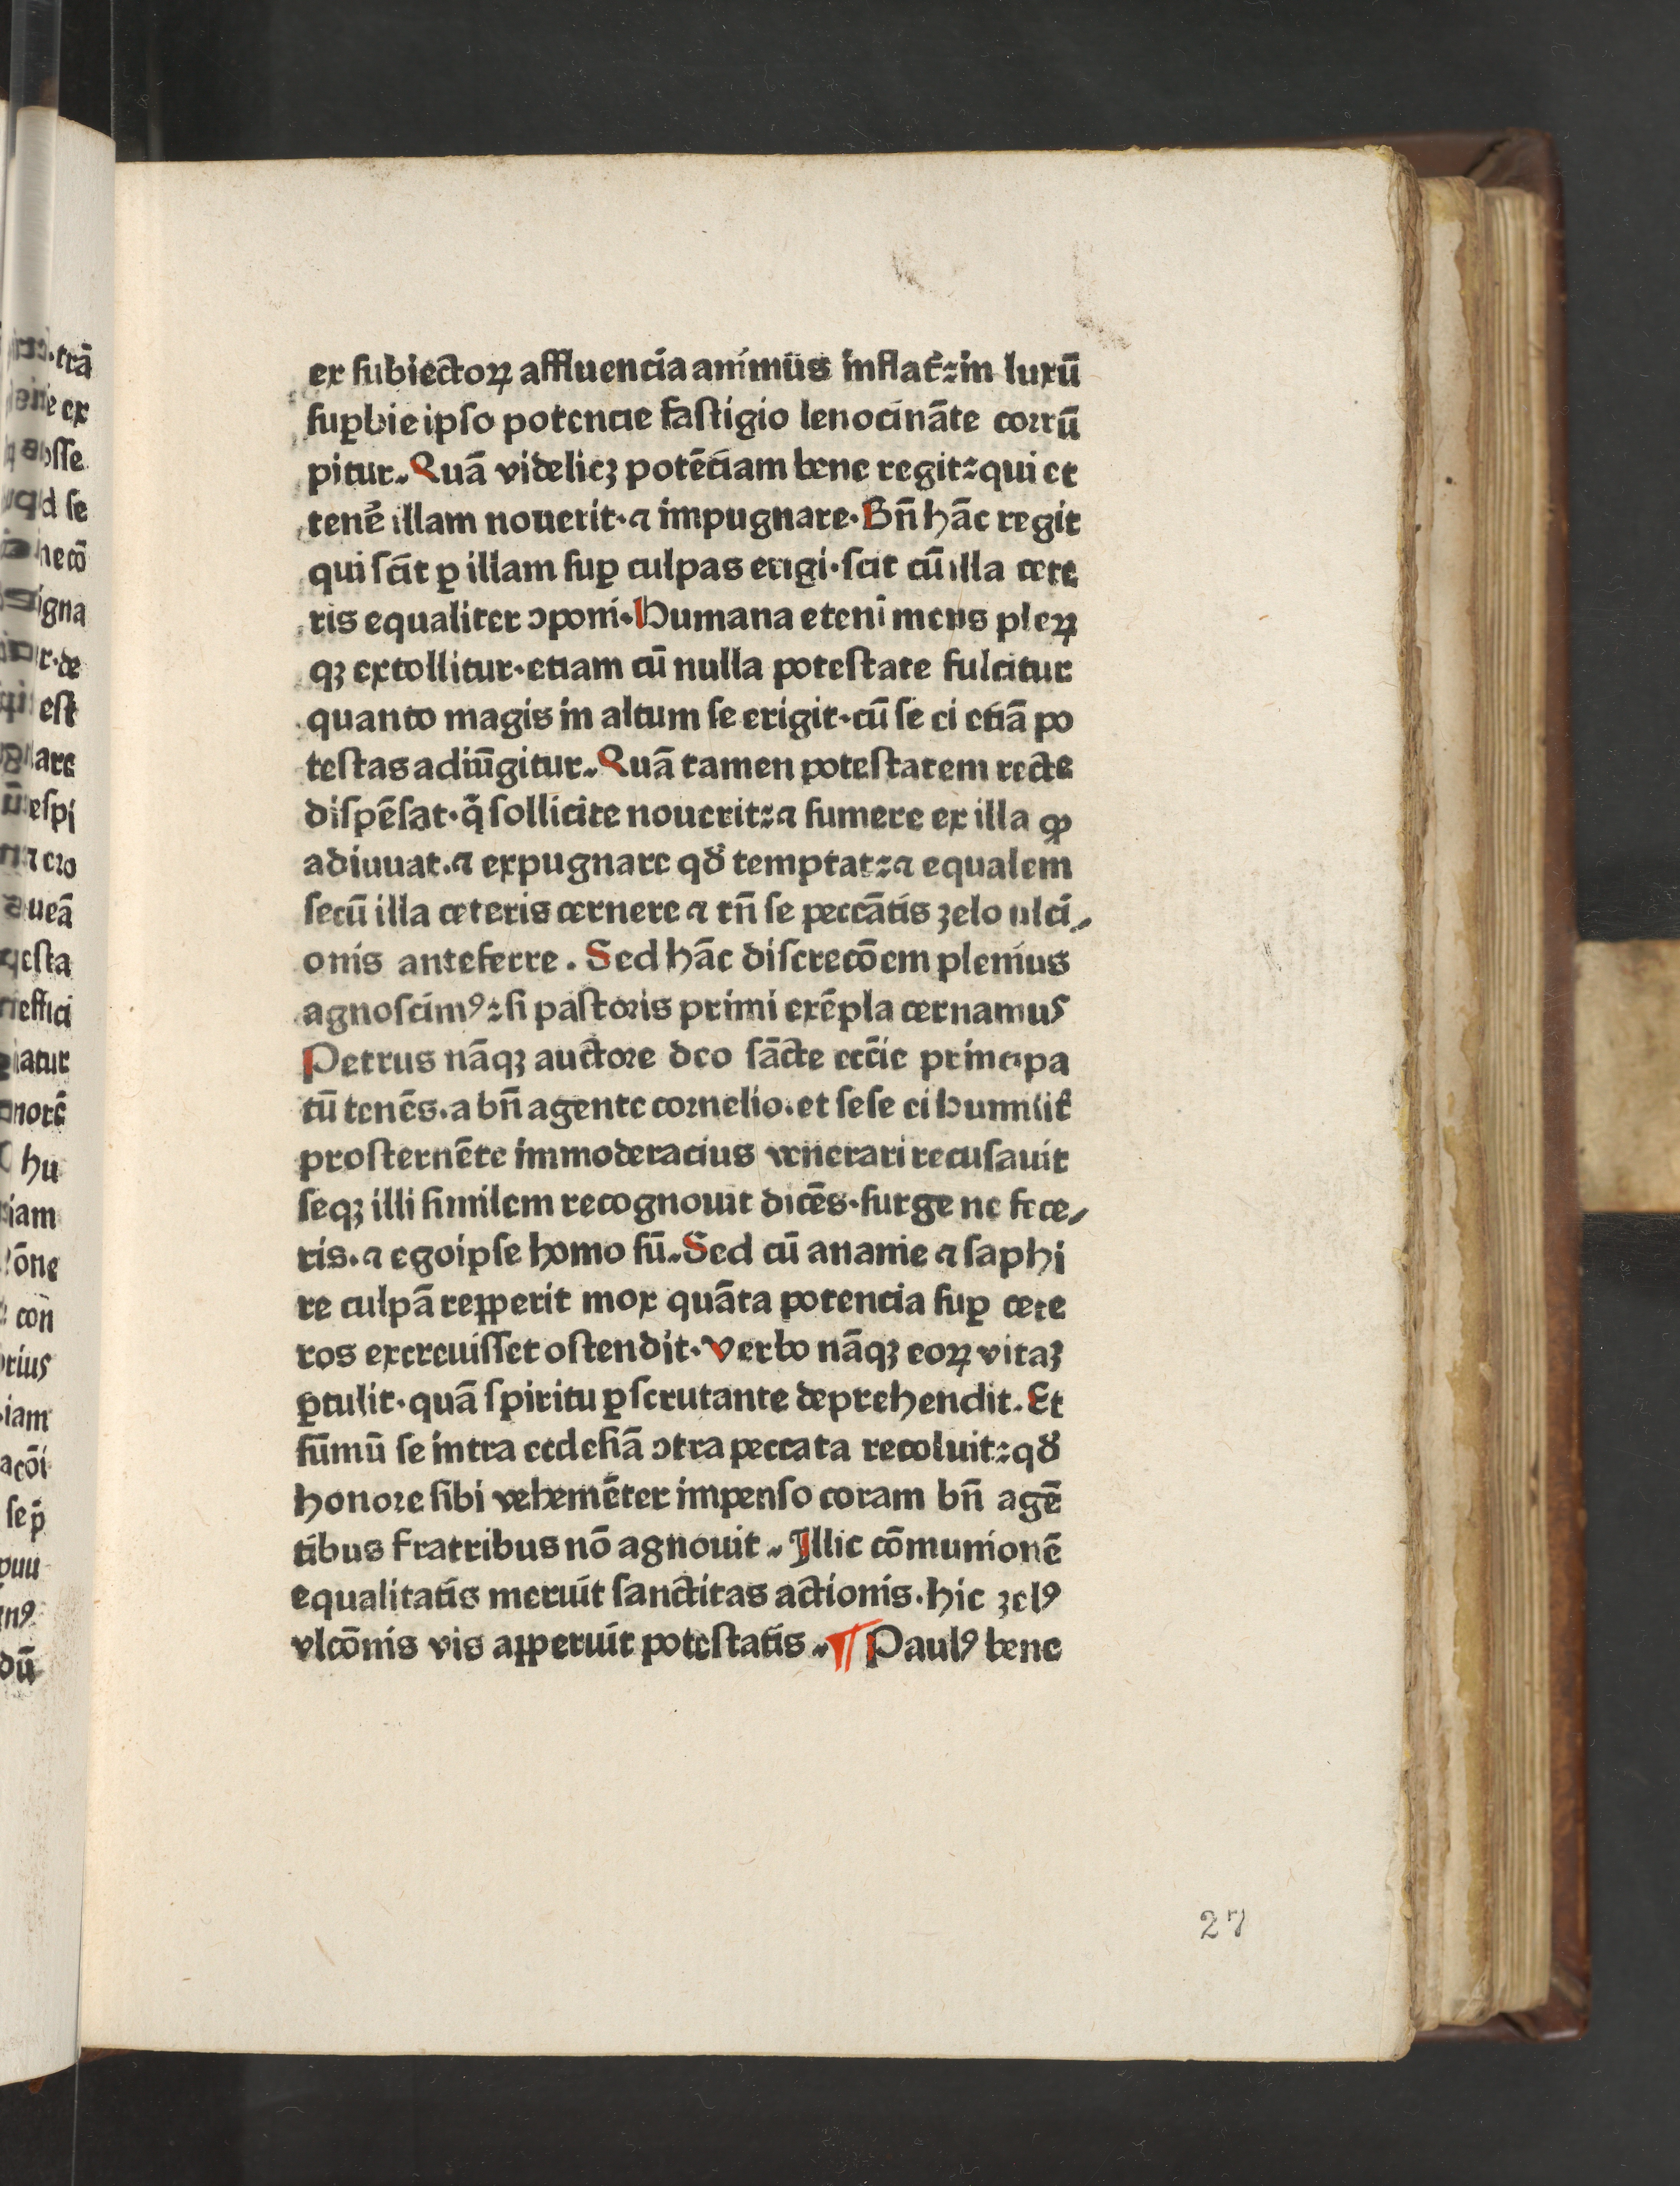 ex subiectoꝝ affluencia animus inflat̃: in luxū
suꝑbie ipso potencie fastigio lenocināte corrū
pitur. Quā videlicꝫ potēciam bene regit: qui et
tenẽ illam nouerit. ⁊ impugnare. Bn̄ hāc regit
qui scit ꝑ illam suꝑ culpas erigi. scit cū illa cete
ris equaliter ↄponi. Humana etenī mens pleꝝ
qꝫ extollitur. etiam cū nulla potestate fulcitur
quanto magis in altum se erigit. cū se ei etiā po
testas adiūgitur. Quā tamen potestatem recte
dispēsat. q̇ sollicite nouerit: ⁊ sumere ex illa ꝙ
adiuuat. ⁊ expugnare qd̛ temptat: ⁊ equalem
secū illa ceteris cernere ⁊ tn̄ se peccātis zelo ulci⸗
onis anteferre. Sed hāc discrecōem plenius
agnoscimꝰ: si pastoris primi exēpla cernamus
Petrus nāqꝫ auctore deo sācte ecc̄ie principa
tū tenēs. a bn̄ agente cornelio. et sese ei humilit̃
prosternēte immoderacius venerari recusauit
seqꝫ illi similem recognouit dicēs. surge ne fece⸗
ris. ⁊ ego ipse homo sū. Sed cū ananie ⁊ saphi
re culpā repperit mox quāta potencia suꝑ cete
ros excreuisset ostendit. Verbo nāqꝫ eoꝝ vitaꝫ
ꝑculit. quā spiritu ꝑscrutante deprehendit. Et
sūmū se intra ecclesiā ↄtra peccata recoluit: qd̛
honore sibi vehemēter impenso coram bn̄ agē
tibus fratribus nō agnouit. Illic cōmunionē
equalitatis meruit sanctitas actionis. hic zelꝰ
vlcōnis vis apperuit potestatis. ¶ Paulꝰ bene
27